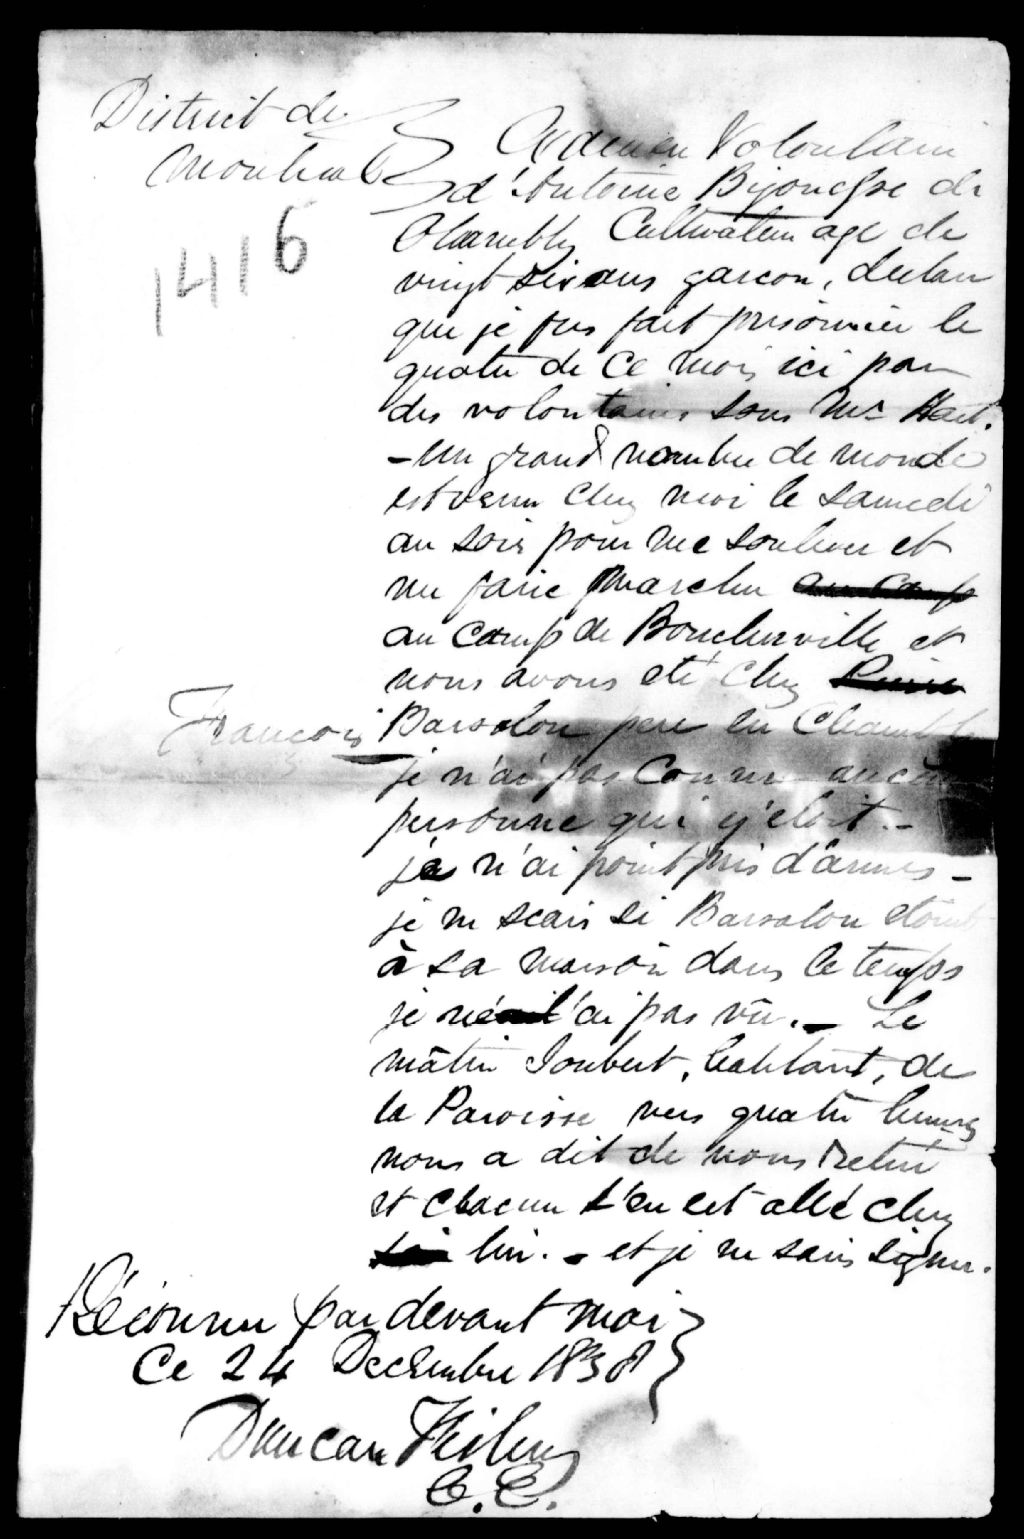 District de
Montreal
1416
Examen Volontaire
d'Antoine Bijonesse de
Chambly Cultivateur age de
vingt six ans garcon, declare
que je fus fait prisonnier le
quatre de ce mois ici par
des volontaires sous Mr
- Un grand nombre de monde
est venu chez moi le samedi
au soir pour me soulever et
me faire marcher au camp
au camp de Boucherville et
nous avons eté chez Pierre
François Barsalou pere en Chambly
je n'ai pas connu aucune
personne qui y'etoit. -
je n'ai point pris d'armes -
je ne scais si Barsalou etoit
à sa maison dans le temps
je ne l'ai pas vû. - Le
mâtin Joubert, habitant, de
la Paroisse vers quatre heures
nous a dit de nous retiré
et chacun s'en est allé chez
soi lui. - et je ne sais signer.
Réconnu par devant moi
Ce 24 Decembre 1838
Duncan
C.C.